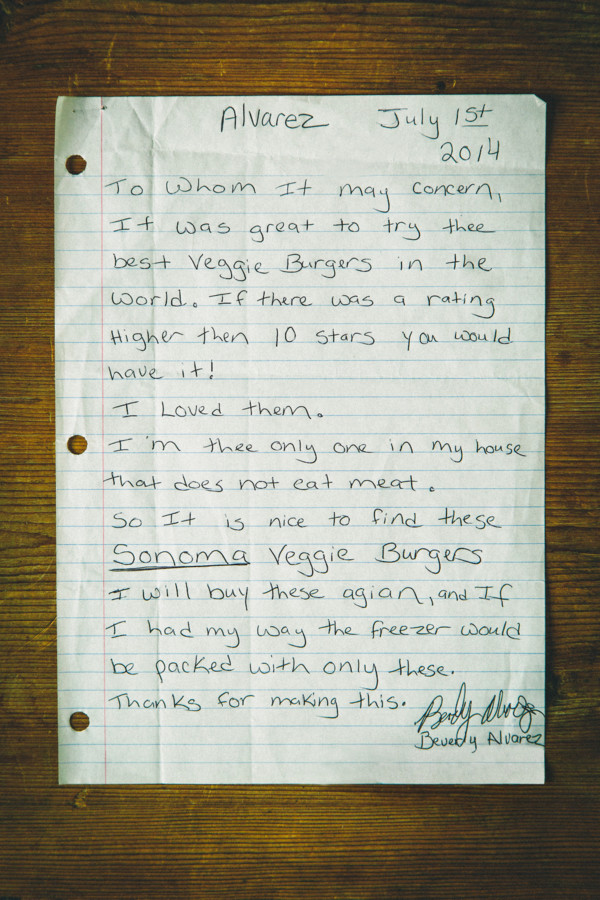 Alvarez July 1st
2014
To Whom It may concern,
It was great to try thee
best Veggie Burgers in the
world. If there was a rating
Higher then 10 stars you would
have it!
I Loved them.
I'm thee only one in my house
that does not eat meat.
So It is nice to find these
Sonoma Veggie Burgers
I will buy these agian, and If
I had my way the freezer would
be packed with only these.
Thanks for making this.
Beverly Alvarez
Beverly Alvarez